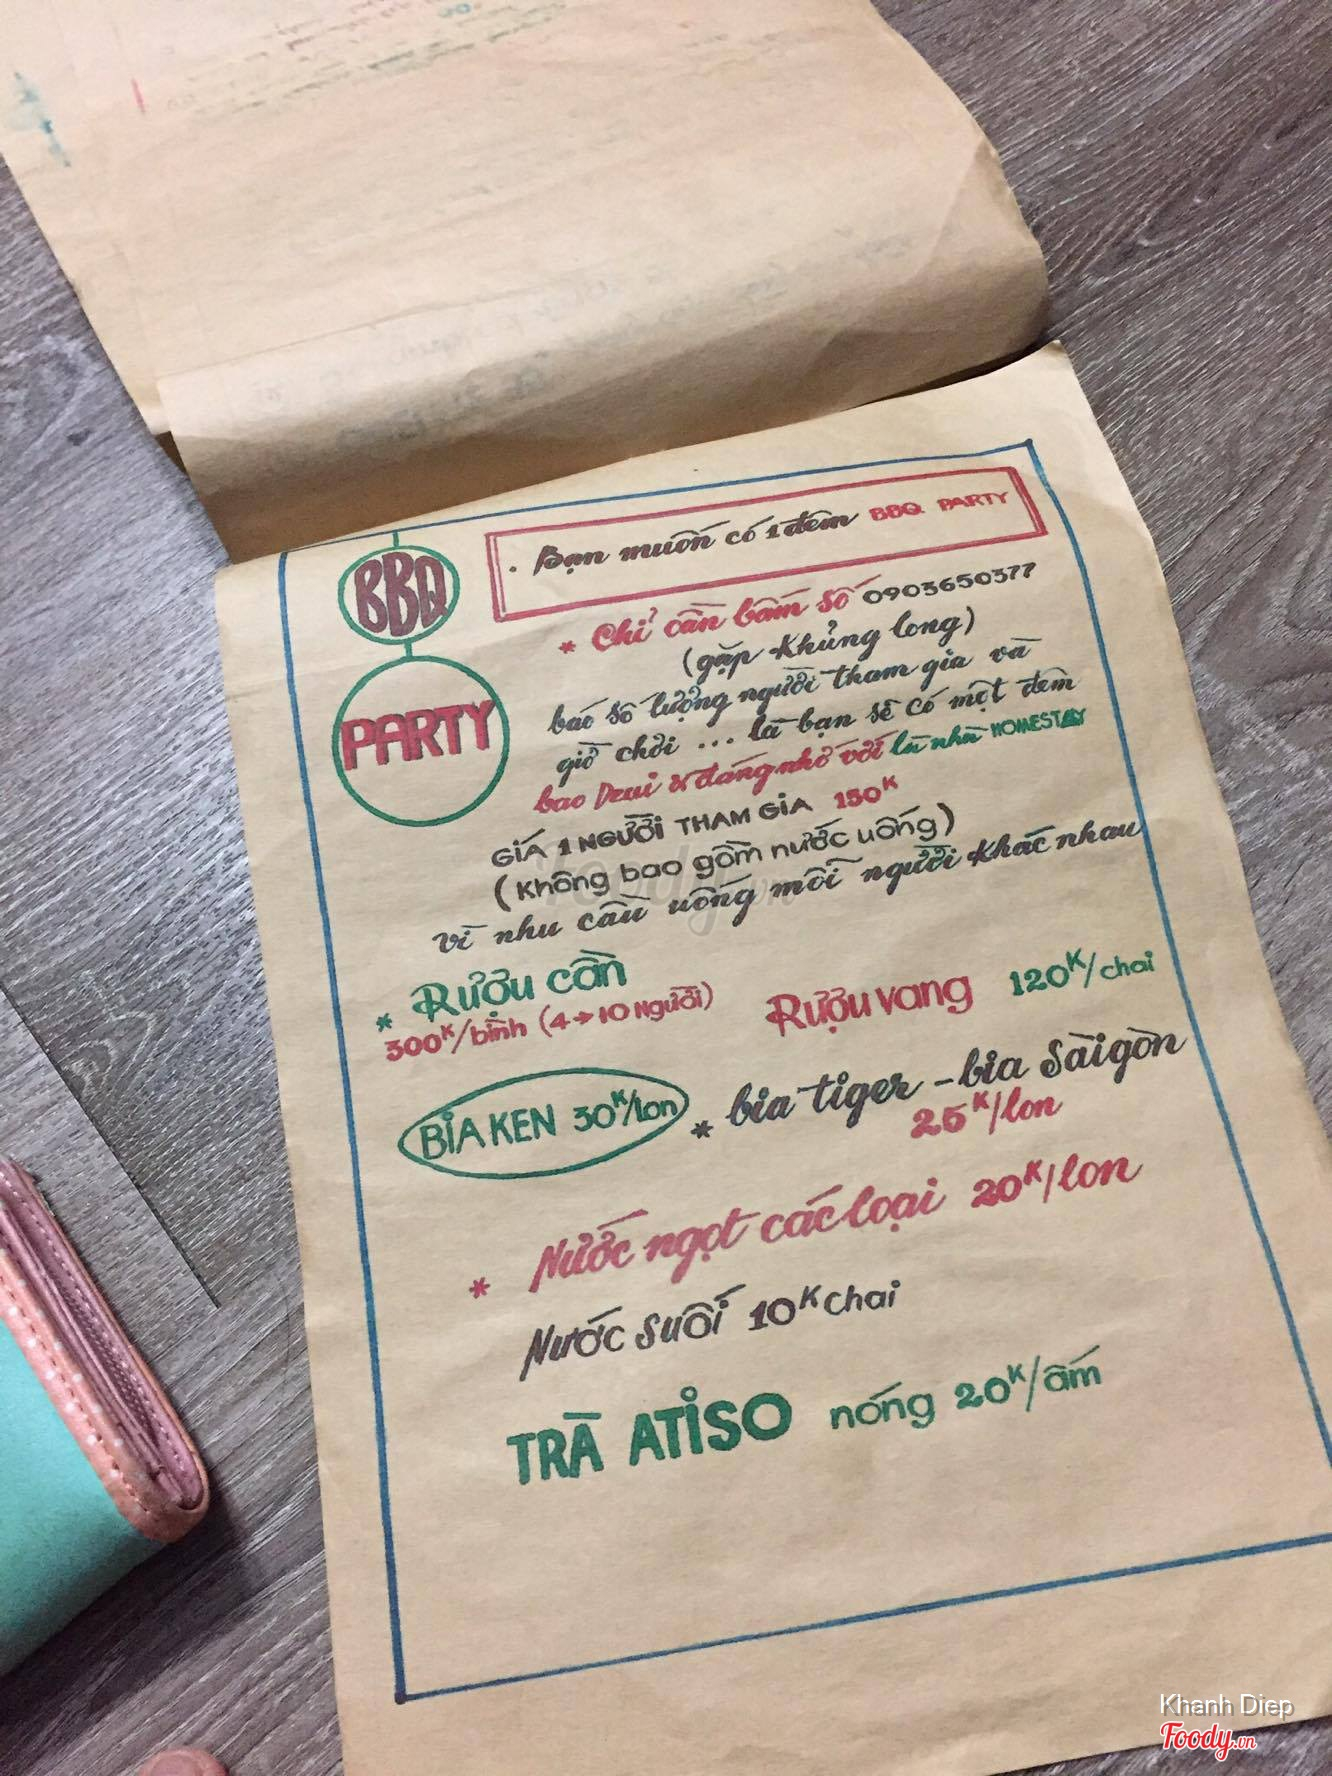 BBQ
PARTY
. Bạn muốn có 1 đêm BBQ PARTY
* Chỉ cần bấm số 0903650377
(gặp Khủng long)
báo số lượng người tham gia và
giờ chơi ... là bạn sẽ có một đêm
bao Dzui & đáng nhớ với lu nhà HOMESTAY
GIÁ 1 NGƯỜI THAM GIA 150K
(Không bao gồm nước uống)
vì nhu cầu uống mỗi người khác nhau
* Rượu cần
300K/bình (4→10 người)
Rượu vang 120K/chai
BIA KEN 30K/lon
* bia tiger - bia Sàigòn
25K/lon
* Nước ngọt các loại 20K/lon
Nước suối 10K chai
TRÀ ATISO nóng 20K/ấm
Khanh Diep
Foody.vn